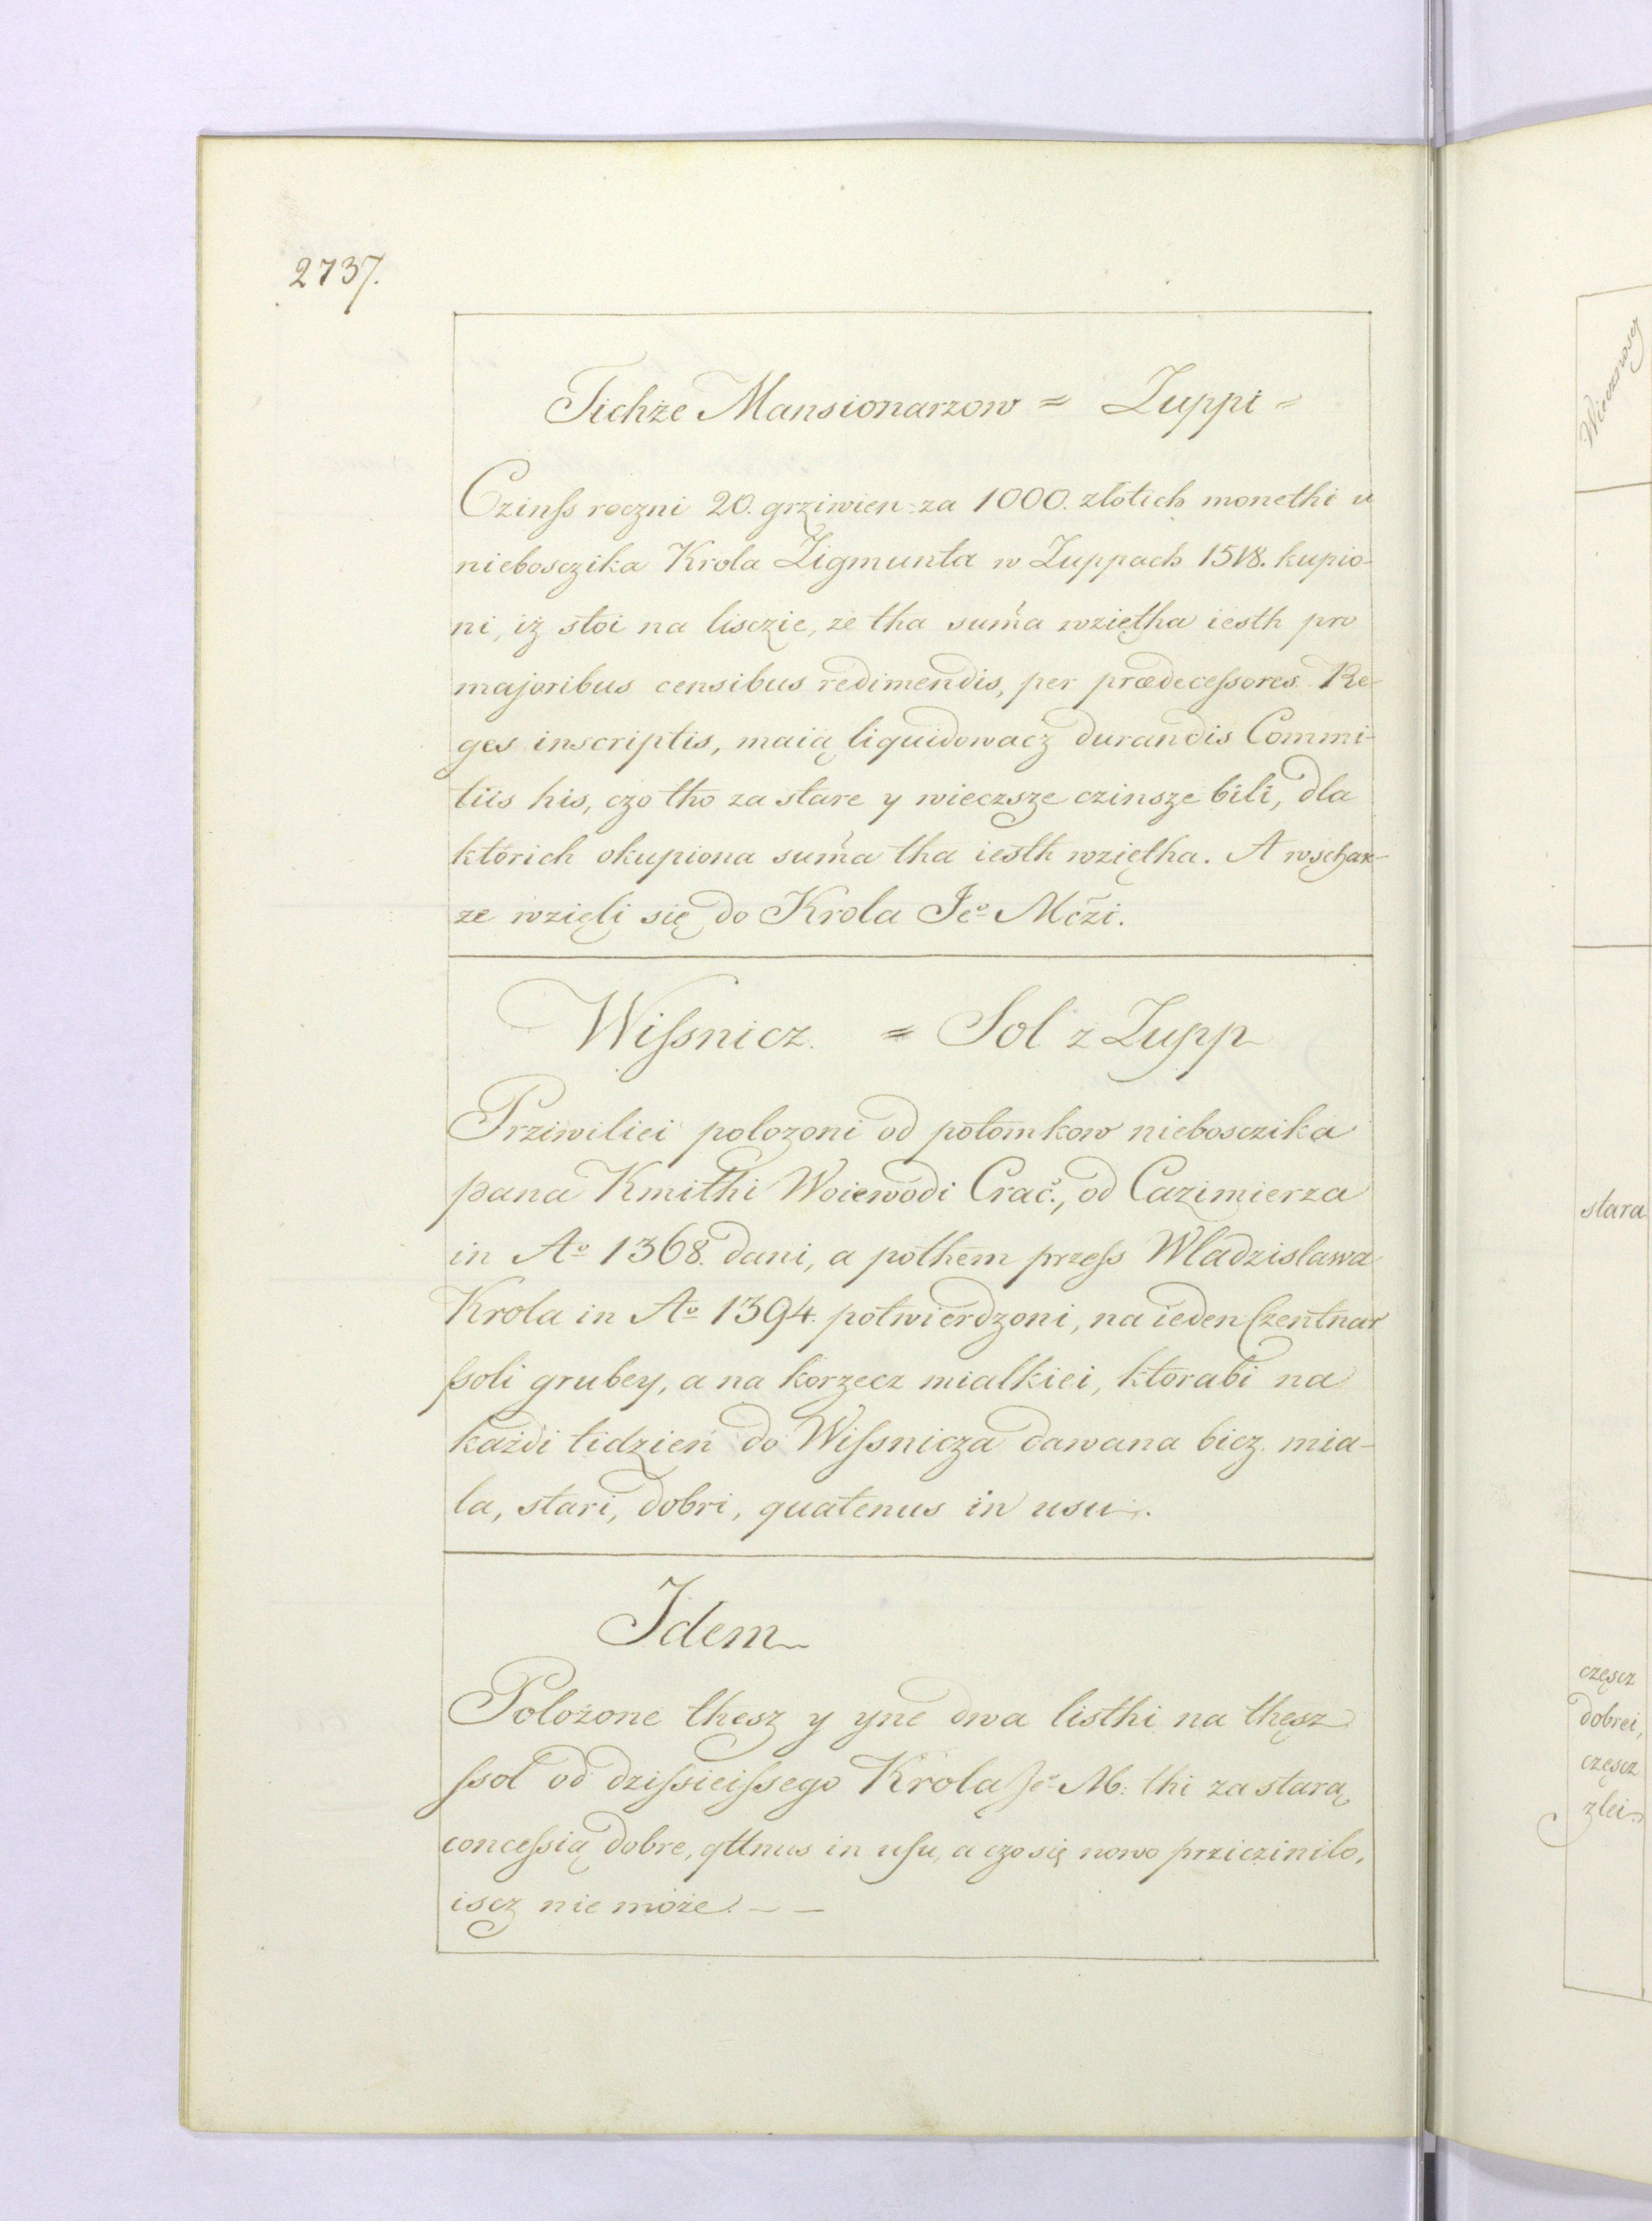 2737.
Tichże Mansionarzow = Zuppi =
Czinſs roczni 20. grziwien za 1000. złotich monethi u
niebosczika Krola Zigmunta w Zuppach 1518. kupio-
ni, iż stoi na lisczie, ze tha sum̃a wziętha iesth pro
majoribus censibus redimendis, per prædeceſsores Re-
ges inscriptis, maią liquidowacz durandis Commi-
tiis his, czo tho za stare y wieczsze czinsze bili, dla
ktorich okupiona sum̃a tha iesth wziętha. A
ze wzięli się do Krola Jeº Mc̃zi.
Wiſsnicz. = Sol z Zupp
Prziwiliei polozoni od potomkow niebosczika
pana Kmithi Woiewodi Crac̃., od Cazimierza
in Aº 1368. dani, a pothem przeſs Wladzislawa
Krola in Aº 1394. potwierdzoni, na ieden Czentnar
ſsoli grubey, a na korzecz mialkiei, ktorabi na
każdi tidzień do Wiſsnicza dawana bicz mia-
la, stari, dobri, quatenus in usu.
Idem
Położone thesz y yne dwa listhi na thęsz
ſsol od dziſsieiſsego Krola Jeº M: thi za starą
conceſsią dobre, qttnus in uſu, a czo się nowo prziczinilo,
iscz nie może. – –
Wiecznosą
stara
częscz
dobrei,
częscz
zlei